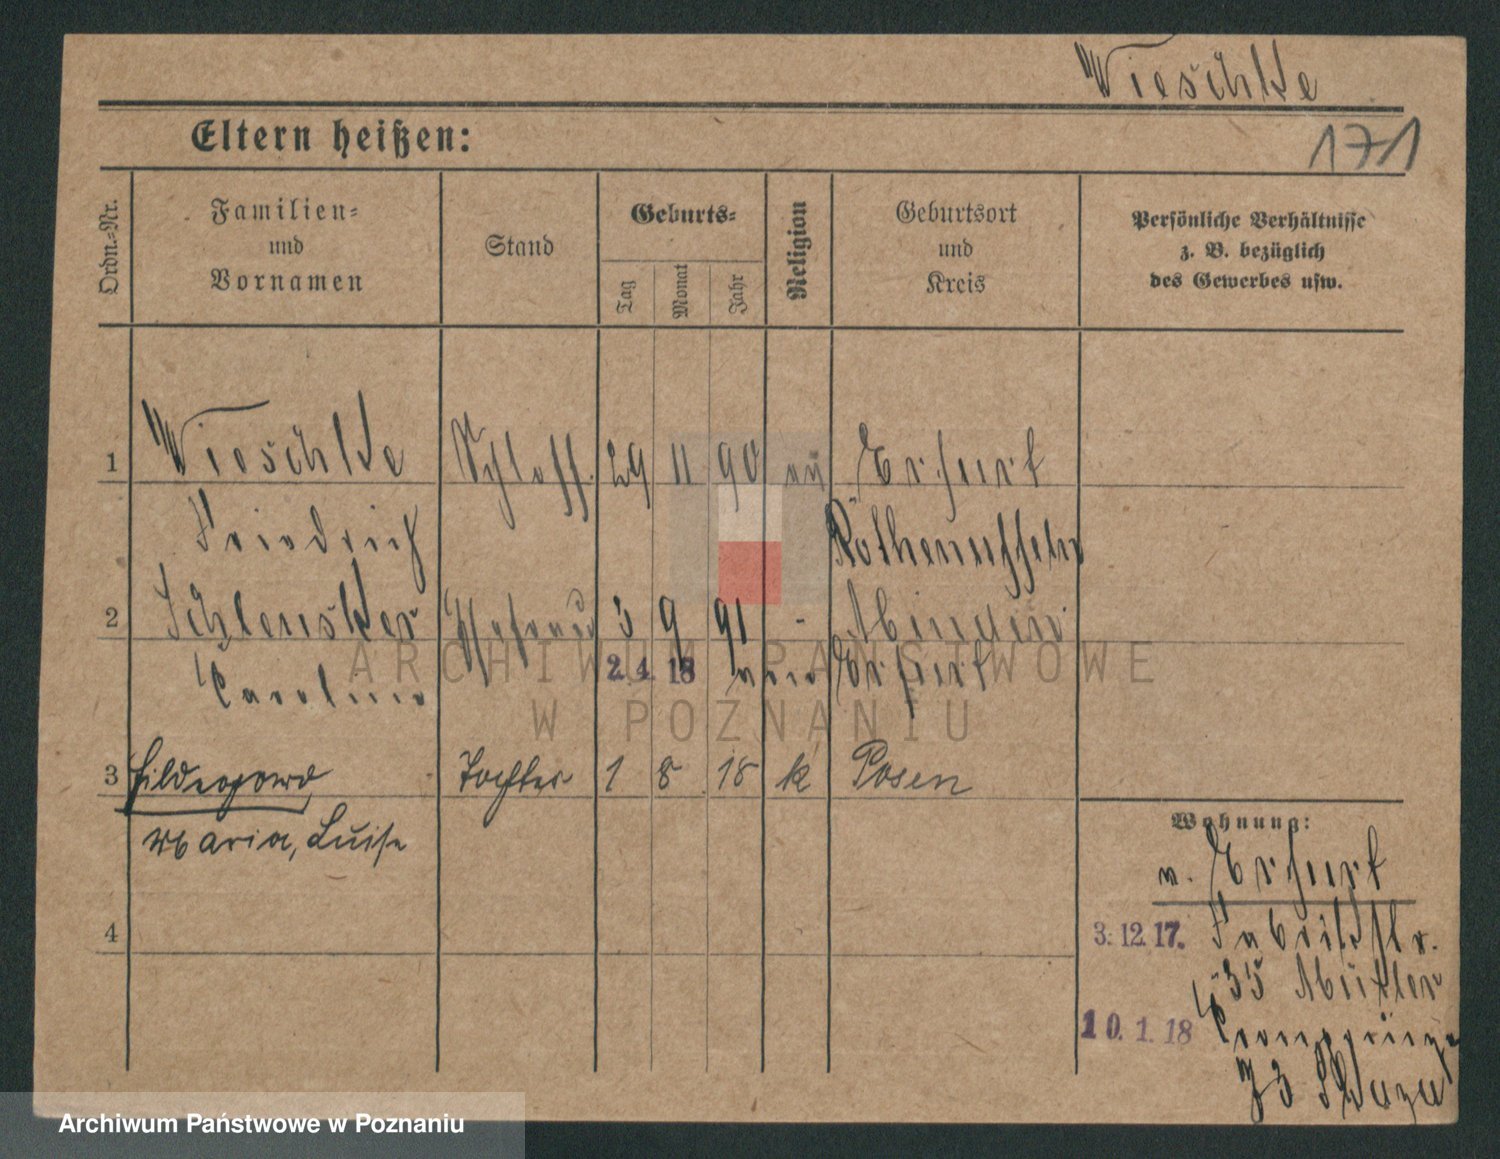 Wieschke
Eltern heißen:
171
Ordn.-Nr.
Familien-
und
Vornamen
Stand
Geburts-
Tag
Monat
Jahr
Religion
Geburtsort
und
Kreis
Persönliche Verhältnisse
z. B. bezüglich
des Gewerbes usw.
1 Wieschke Schloss. 29 11 90 ev Erfurt
Friedrich
2 Schlensker 3 9 91 - Minden
Caroline 2. 4. 18 Erfurt
3 Hildegard Tochter 1 8 18 k Posen
Maria, Luise
4
Wohnung:
v. Erfurt
3. 12. 17. Fabrikstr.
35
10. 1. 18 Cronprinz
73
ARCHIWUM PAŃSTWOWE
W POZNANIU
Archiwum Państwowe w Poznaniu